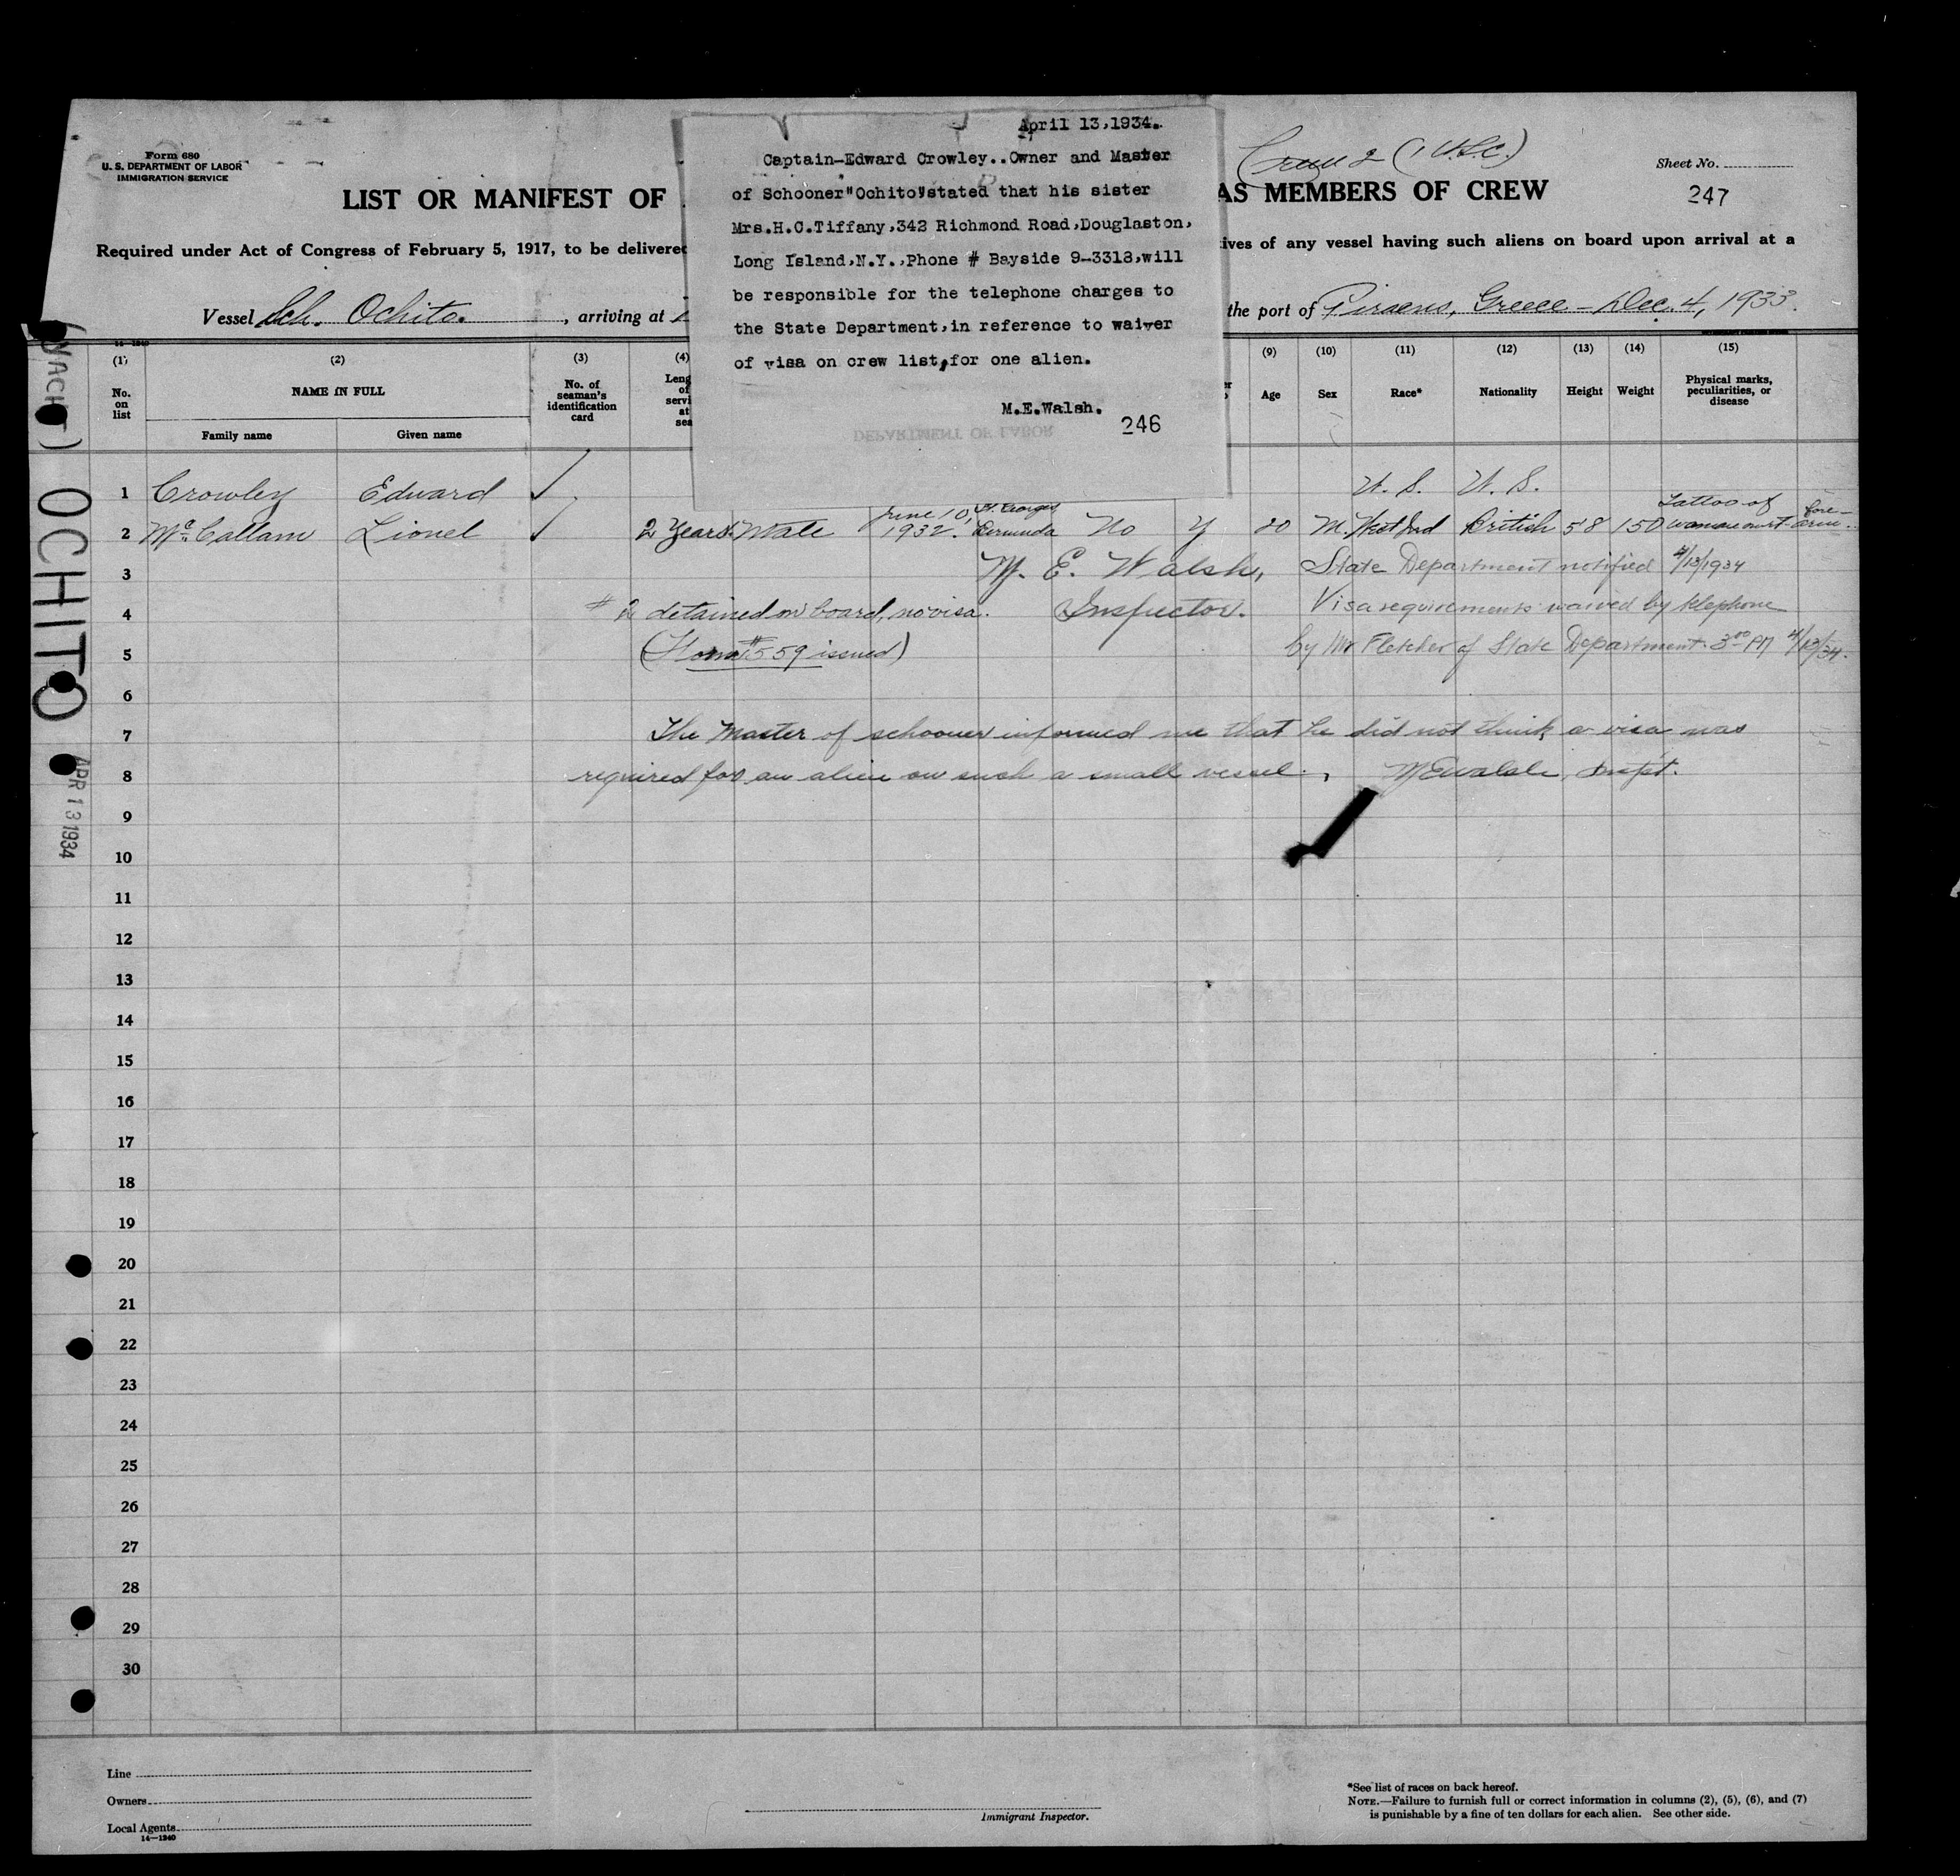 April 13,1934.
Captain-Edward Crowley..Owner and Master
of Schooner"Ochito"stated that his sister
Mrs.H.C.Tiffany,342 Richmond Road,Douglaston,
Long Island,N.Y.,Phone # Bayside 9-3318,will
be responsible for the telephone charges to
the State Department,in reference to waiver
of visa on crew list,for one alien.
M.E.Walsh.
246
DEPARTMENT OF LABOR
Form 680
U. S. DEPARTMENT OF LABOR
IMMIGRATION SERVICE
Crew 2 (1 U.S.C.)
Sheet No.
247
LIST OR MANIFEST OF AS MEMBERS OF CREW
Required under Act of Congress of February 5, 1917, to be delivered ives of any vessel having such aliens on board upon arrival at a
Vessel Sch. Ochito. , arriving at the port of Piraeus, Greece - Dec. 4, 1933.
(1) (2) (3) (4) (9) (10) (11) (12) (13) (14) (15)
No. on list
NAME IN FULL
Family name Given name
No. of seaman's identification card
Leng of servi at sea
Age Sex Race* Nationality Height Weight
Physical marks, peculiarities, or disease
1 Crowley Edward U. S. U. S.
2 McCallam Lionel 2 Years. Mate June 10, 1932. St. Georges Bermuda No Y 20 M. West Ind British 5 8 150 Tattoo of woman on rt. fore-arm.
3 M. E. Walsh, State Department notified 4/13/1934
4 # 2 detained on board, no visa. Inspector. Visa requirements waived by telephone
5 (Form # 559 issued) by Mr Fletcher of State Department 3 00 PM 4/13/34.
6
7 The Master of schooner informed me that he did not think a visa was
8 required for an alien on such a small vessel. MEWalsh, Inspt.
9
10
11
12
13
14
15
16
17
18
19
20
21
22
23
24
25
26
27
28
29
30
(YACHT) OCHITO
APR 13 1934
Line
Owners
Local Agents
14—1240
Immigrant Inspector.
*See list of races on back hereof.
NOTE.—Failure to furnish full or correct information in columns (2), (5), (6), and (7)
is punishable by a fine of ten dollars for each alien. See other side.